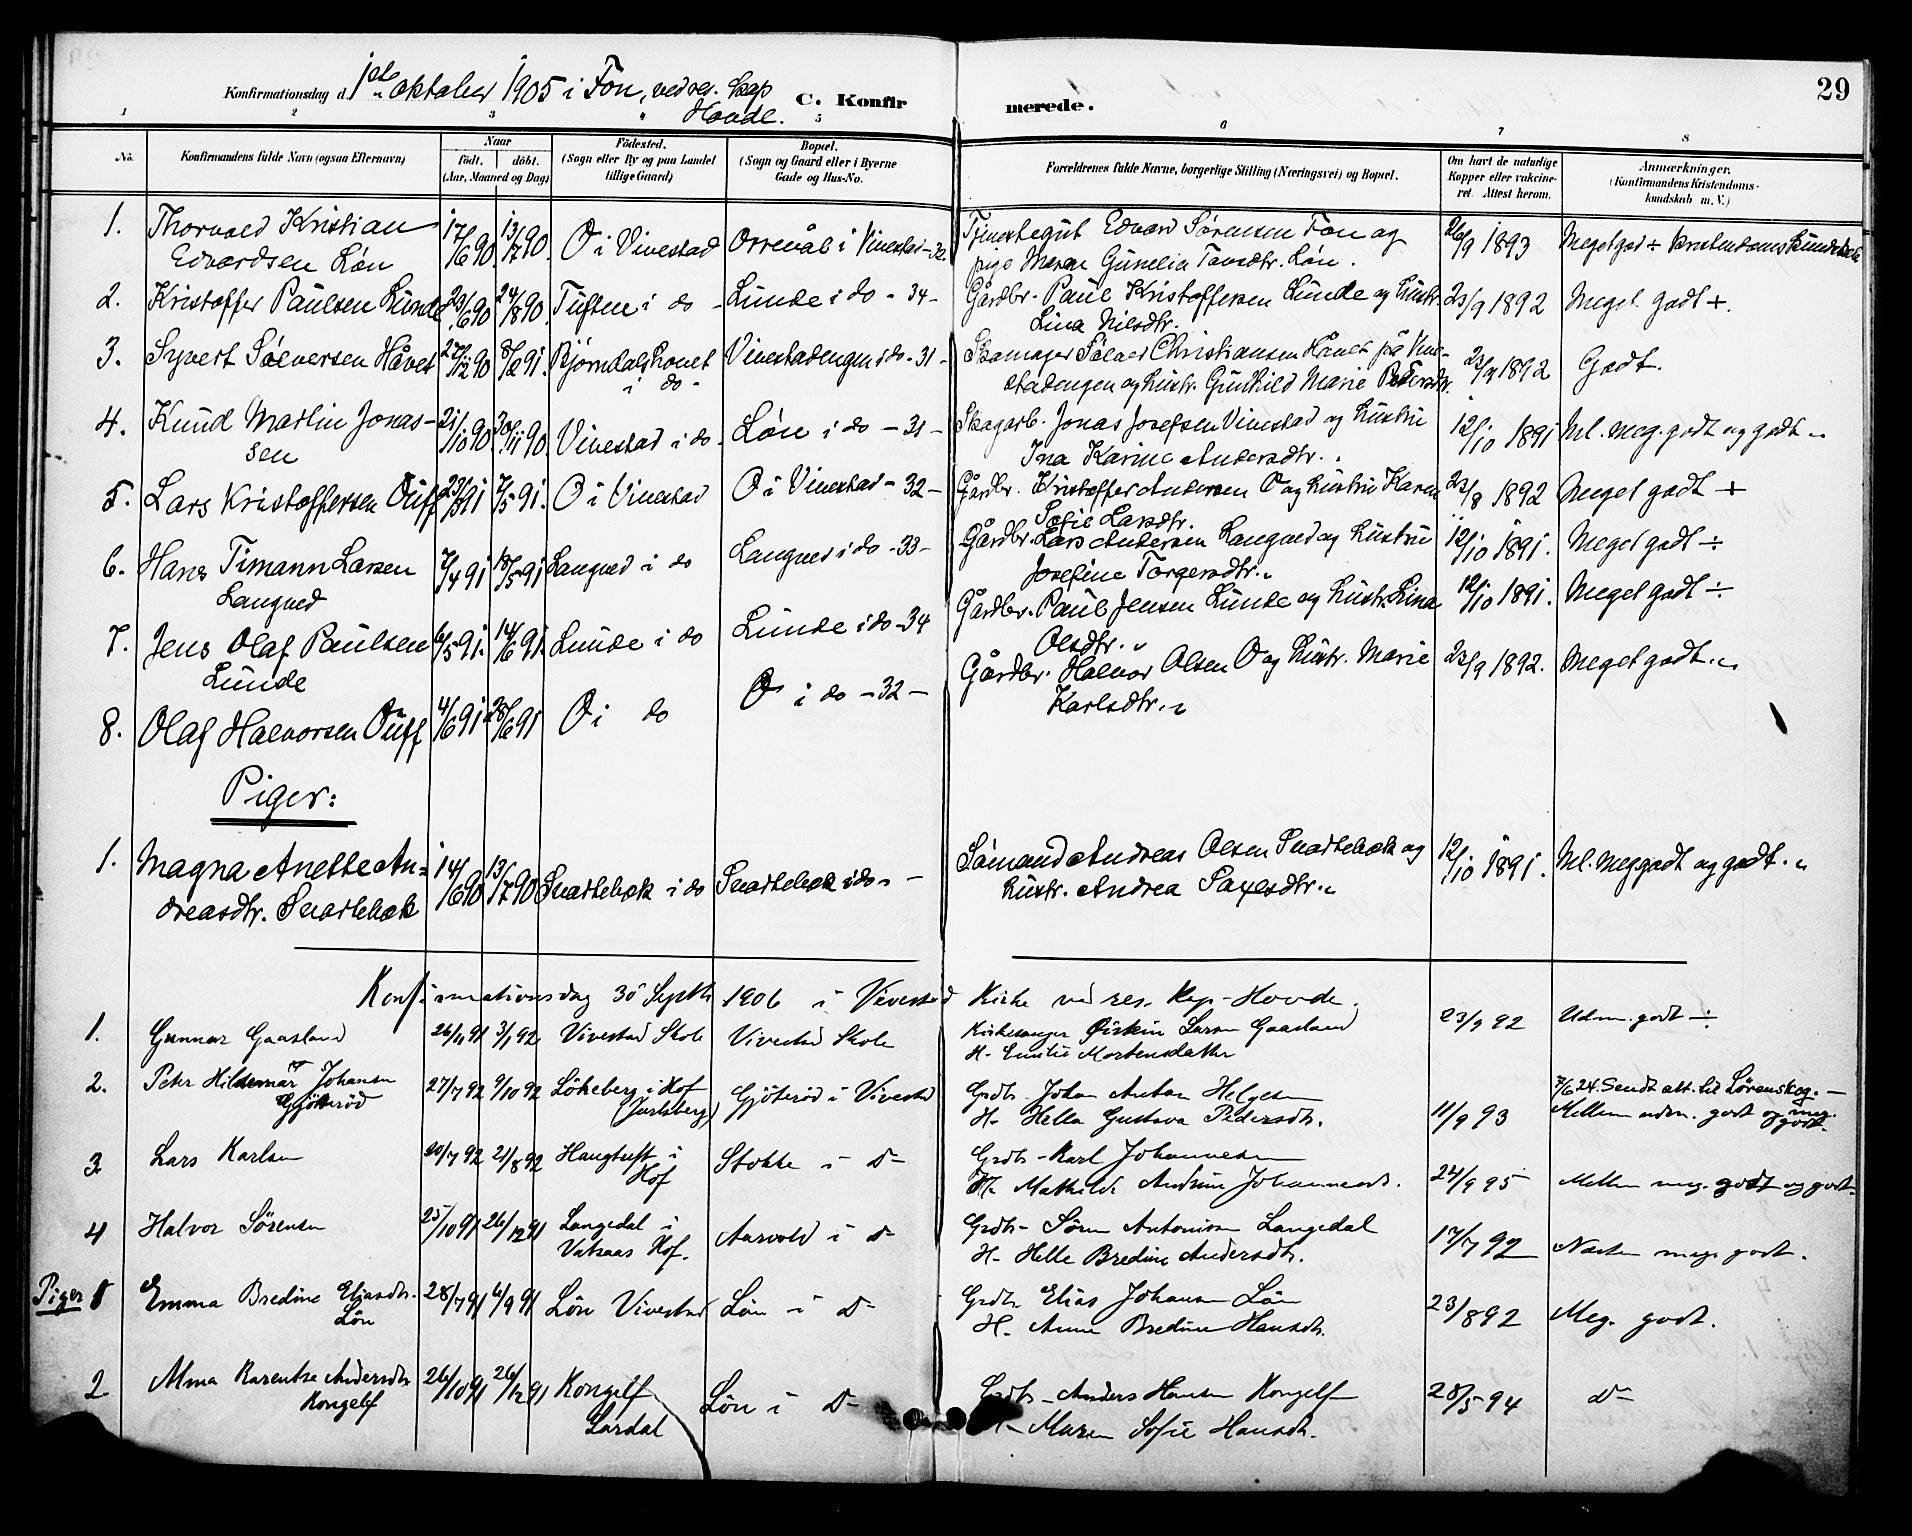 29
Konfirmationsdag d. 1ste oktober 1905 i Fon, ved res. kap
Hovde.
C. Konfirmerede.
1 2 3 4 5 6 7 8
No. Konfirmandens fulde Navn (ogsaa Efternavn)
Naar
født. døbt.
(Aar, Maaned og Dag)
Fødested.
(Sogn eller By og paa Landet
tillige Gaard)
Bopæl.
(Sogn og Gaard eller i Byerne
Gade og Hus-No.
Forældrenes fulde Navne, borgerlige Stilling (Næringsvei) og Bopæl.
Om havt de naturlige
Kopper eller vakcine-
ret. Attest herom.
Anmærkninger.
(Konfirmandens Kristendoms-
kundskab m. V.)
1. Thorvald Kristian 17/6 90 13/7 90. Ø i Vivestad Orrevål i Vivestad - 32. Tjenestegut Edvard Sørensen Fon og 26/9 1893 Meget godt ÷ Kristendomskundskab
Edvardsen Løn pige Maren Gunelia Tovsdtr. Løn.
2. Kristoffer Paulsen Lunde 23/6 90 24/8 90. Tuften i do - Lunde i do - 34 - Gårdbr. Paul Kristoffersen Lunde og hustr. 23/9 1892 Meget godt +.
Lina Nilsdtr.
3. Syvert Sølversen Håvet 27/12 90 8/2 91. Bjørndalshovet Vivestadengen i do - 31 - Skomager Sølver Christiansen Håvet på Vive- 23/9 1892 Godt.
i do - stadengen og hustr. Gunhild Marie Pedersdtr.
4. Knud Martin Jonas- 21/10 90. 30/11 90. Vivestad i do - Løn i do - 31 - Skogarb. Jonas Josefsen Vivestad og hustru 12/10 1891 Ml. meg. godt og godt.
sen Ina Karine Andersdtr.
5. Lars Kristoffersen Øuff 23/3 91 7/5 91. Ø i Vivestad Ø i Vivestad - 32 - Gårdbr. Kristoffer Andersen Ø og hustru Karen 23/8 1892 Meget godt +
Sofie Larsdtr.
6. Hans Timann Larsen 7/4 91 18/5 91 Langved i do Langved i do - 33 - Gårdbr. Lars Andersen Langved og hustru 12/10 1891. Meget godt ÷
Langved Josefine Torgersdtr.
7. Jens Olaf Paulsen 6/5 91. 14/6 91. Lunde i do Lunde i do - 34 Gårdbr. Paul Jensen Lunde og hustr. Lina 12/10 1891. Meget godt ÷
Lunde Olsdtr.
8. Olaf Halvorsen Øuff 4/6 91 28/6 91 Ø i do Ø i do - 32 - Gårdbr. Halvor Olsen Ø og hustr. Marie 23/9 1892. Meget godt.
Karlsdtr.
Piger:
1. Magna Anette An- 14/6 90 13/7 90 Snartebæk i do Snartebæk i do - Sømand Andreas Olsen Snartebæk og 12/10 1891. Ml. meg godt og godt.
dreasdtr. Snartebæk hustr. Andrea Saxesdtr.
Konfirmationsdag 30 Septbr 1906 i Vivestad Kirke ved res. Kap. Hovde.
1. Gunnar Gaasland 26/11 91 3/1 92 Vivestad Skole Vivestad Skole Kirkesanger Larsen Gaasland 23/9 92 Udm. godt ÷
H. Emilie Mortensdatter
2. Peter Hildemar Johansen 27/7 92 9/10 92 Løkeberg i Hof Gjøterød i Vivestad Grdbr. Johan Anton Helgesen 7/6 24. Sendt att. til Lørenskog. -
Gjøterød (Jarlsberg) H. Hella Gustava Pedersdtr. 11/9 93 Mellem udm. godt og meg. godt.
3 Lars Karlsen 20/7 92 21/8 92 Haugtuft i Stokke i do Grdbr - Karl Johannesen
Hof H. Mathilde Andrine Johannesdtr. 24/9 95 Mellem meg. godt og godt.
4 Halvor Sørensen 25/10 91 26/12 91 Langedal i Aarvold i do Grdbr - Søren Antonisen Langedal 17/7 92 Næsten meg. godt.
Vataas Hof. H. Helle Bredine Andersdtr.
Piger 1 Emma Bredine Eliasdtr. 28/7 91 6/9 91 Løn Vivestad Løn i do Grdbr Elias Johansen Løn 23/8 92 Meg. godt.
Løn H. Anne Bredine Hansdtr.
2 Alma Karentse Andersdtr 26/10 91 26/12 91 Kongelf Løn i do Grdbr - Anders Hansen Kongelf 28/5 94 do
Kongelf Lardal H. Maren Sofie Hansdtr.